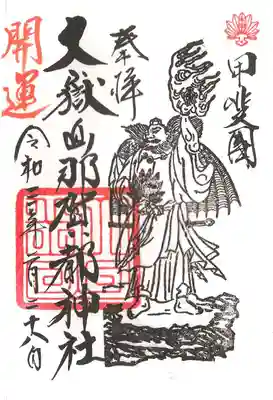 甲斐國
奉拝
大嶽山那賀都神社
開運
令和二年二月二十八日